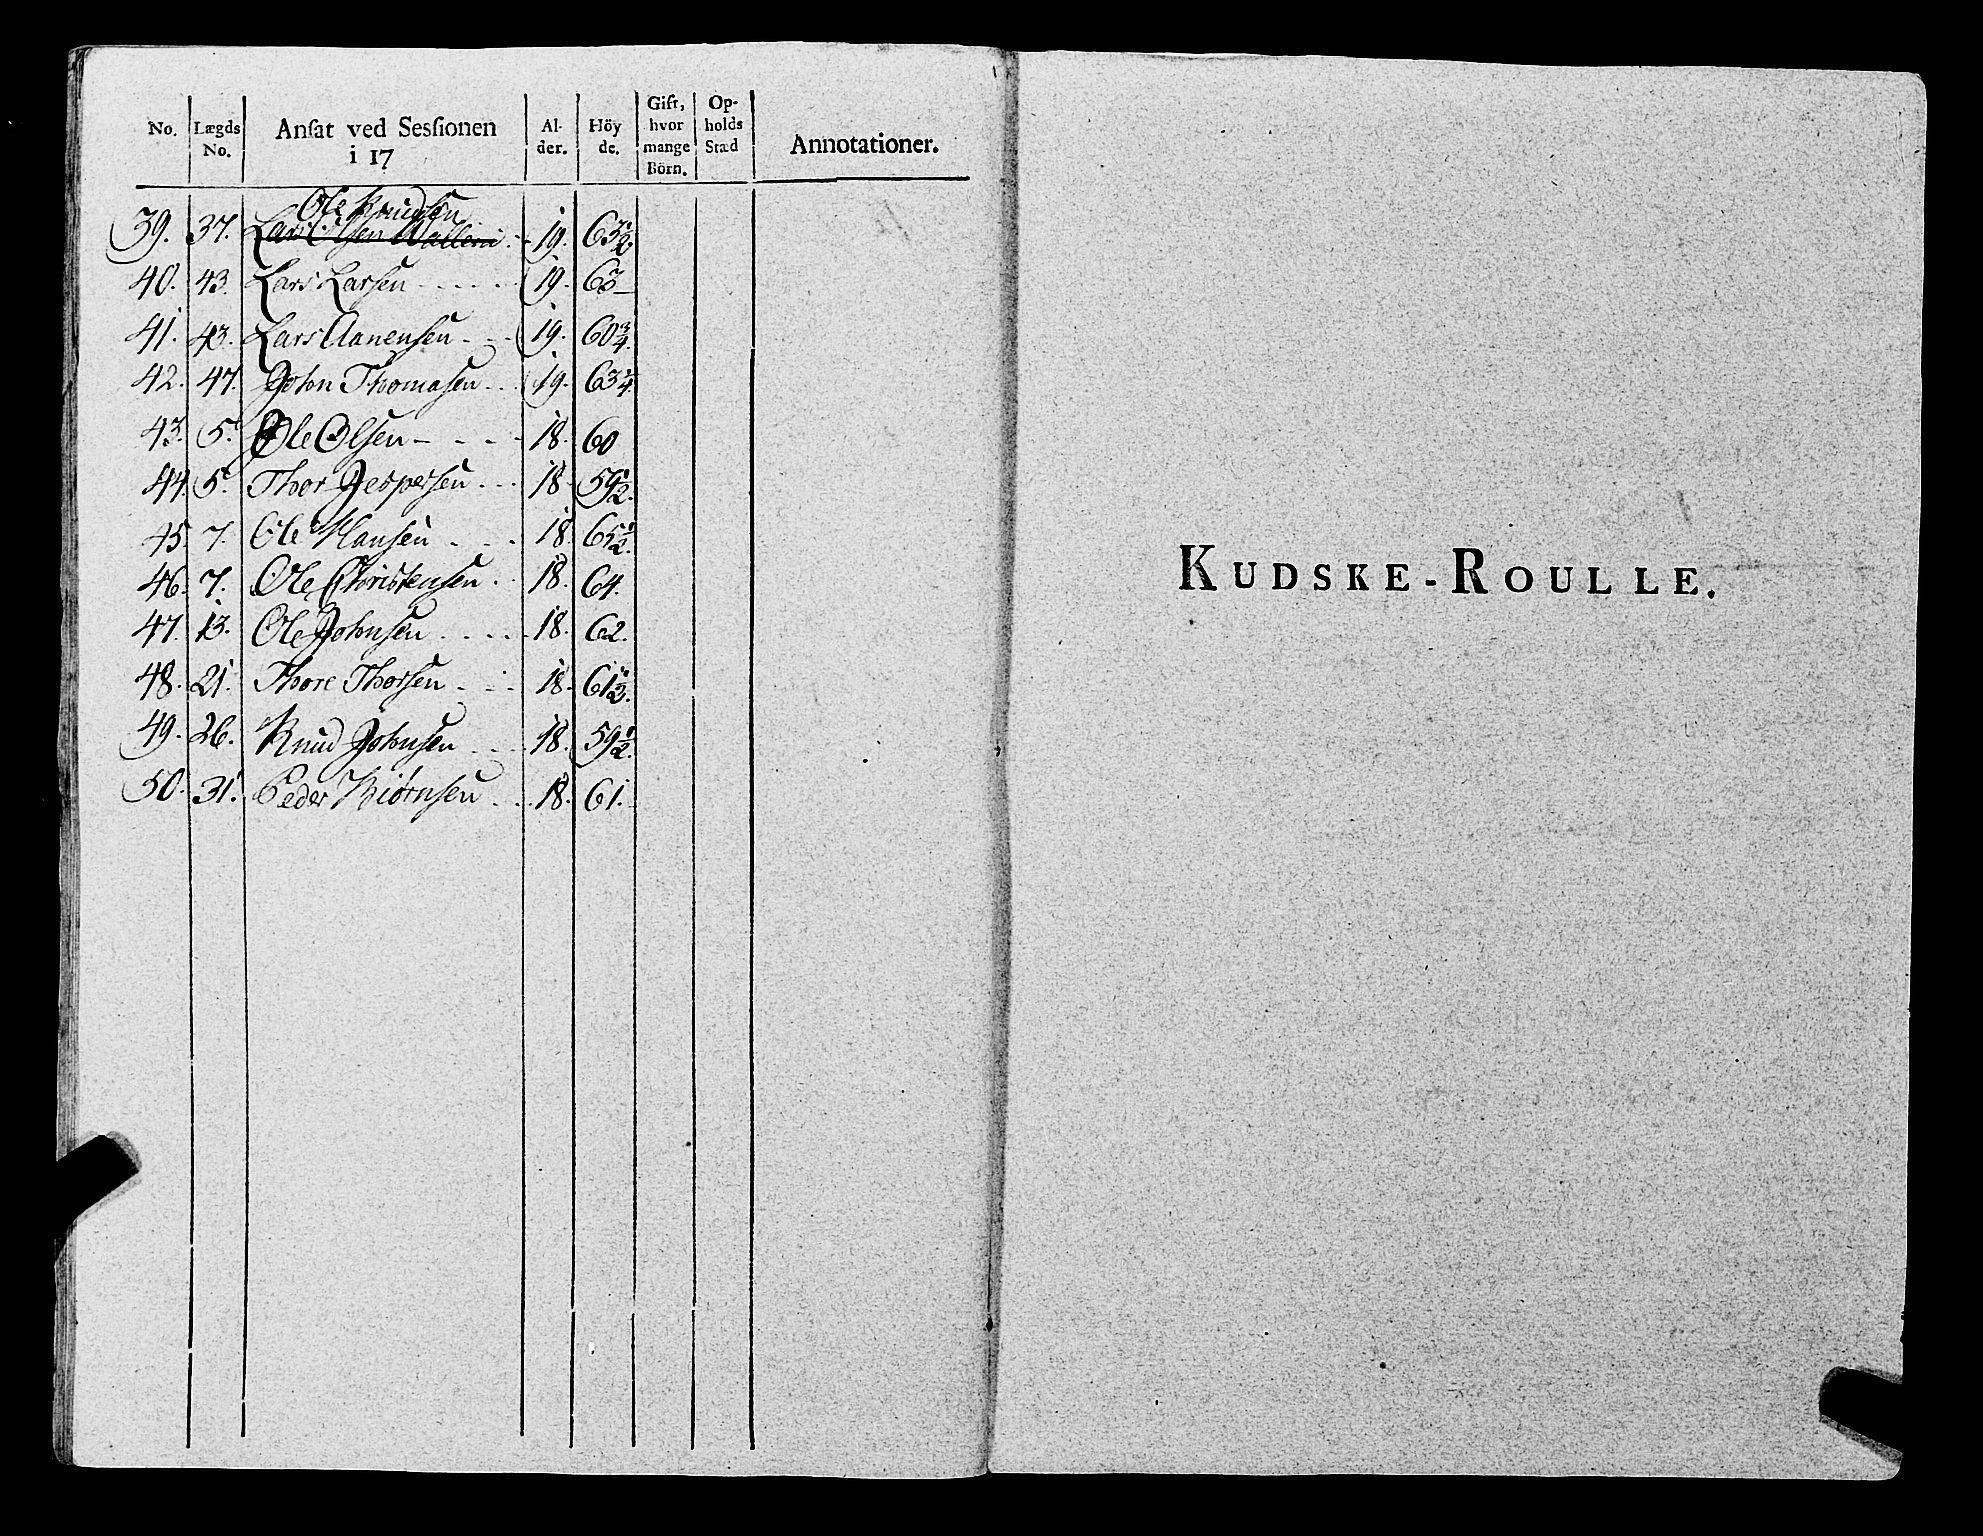 No. Lægds No. Ansat ved Sessionen i 17 Al- der. Höy de. Gift, hvor mange Börn. Op- holds Stæd Annotationer.
Ole Knudsen
39. 37. Lars Olsen 19. 63 1/2
40. 43. Lars Larsen 19. 63
41. 43. Lars Aanensen 19. 60 3/4
42. 47. John Thomasen 19. 63 1/4
43. 5. Ole Olsen 18. 60
44. 5. Thor Jespersen 18. 59 1/2
45. 7. Ole Hansen 18. 65 1/2
46. 7. Ole Christensen 18. 64.
47. 13. Ole Johnsen 18. 62.
48. 21. Thore Thorsen 18. 61 1/2
49. 26. Knud Johnsen 18. 59 1/2
50. 31. Peder Biörnsen 18. 61.
KUDSKE-ROULLE.